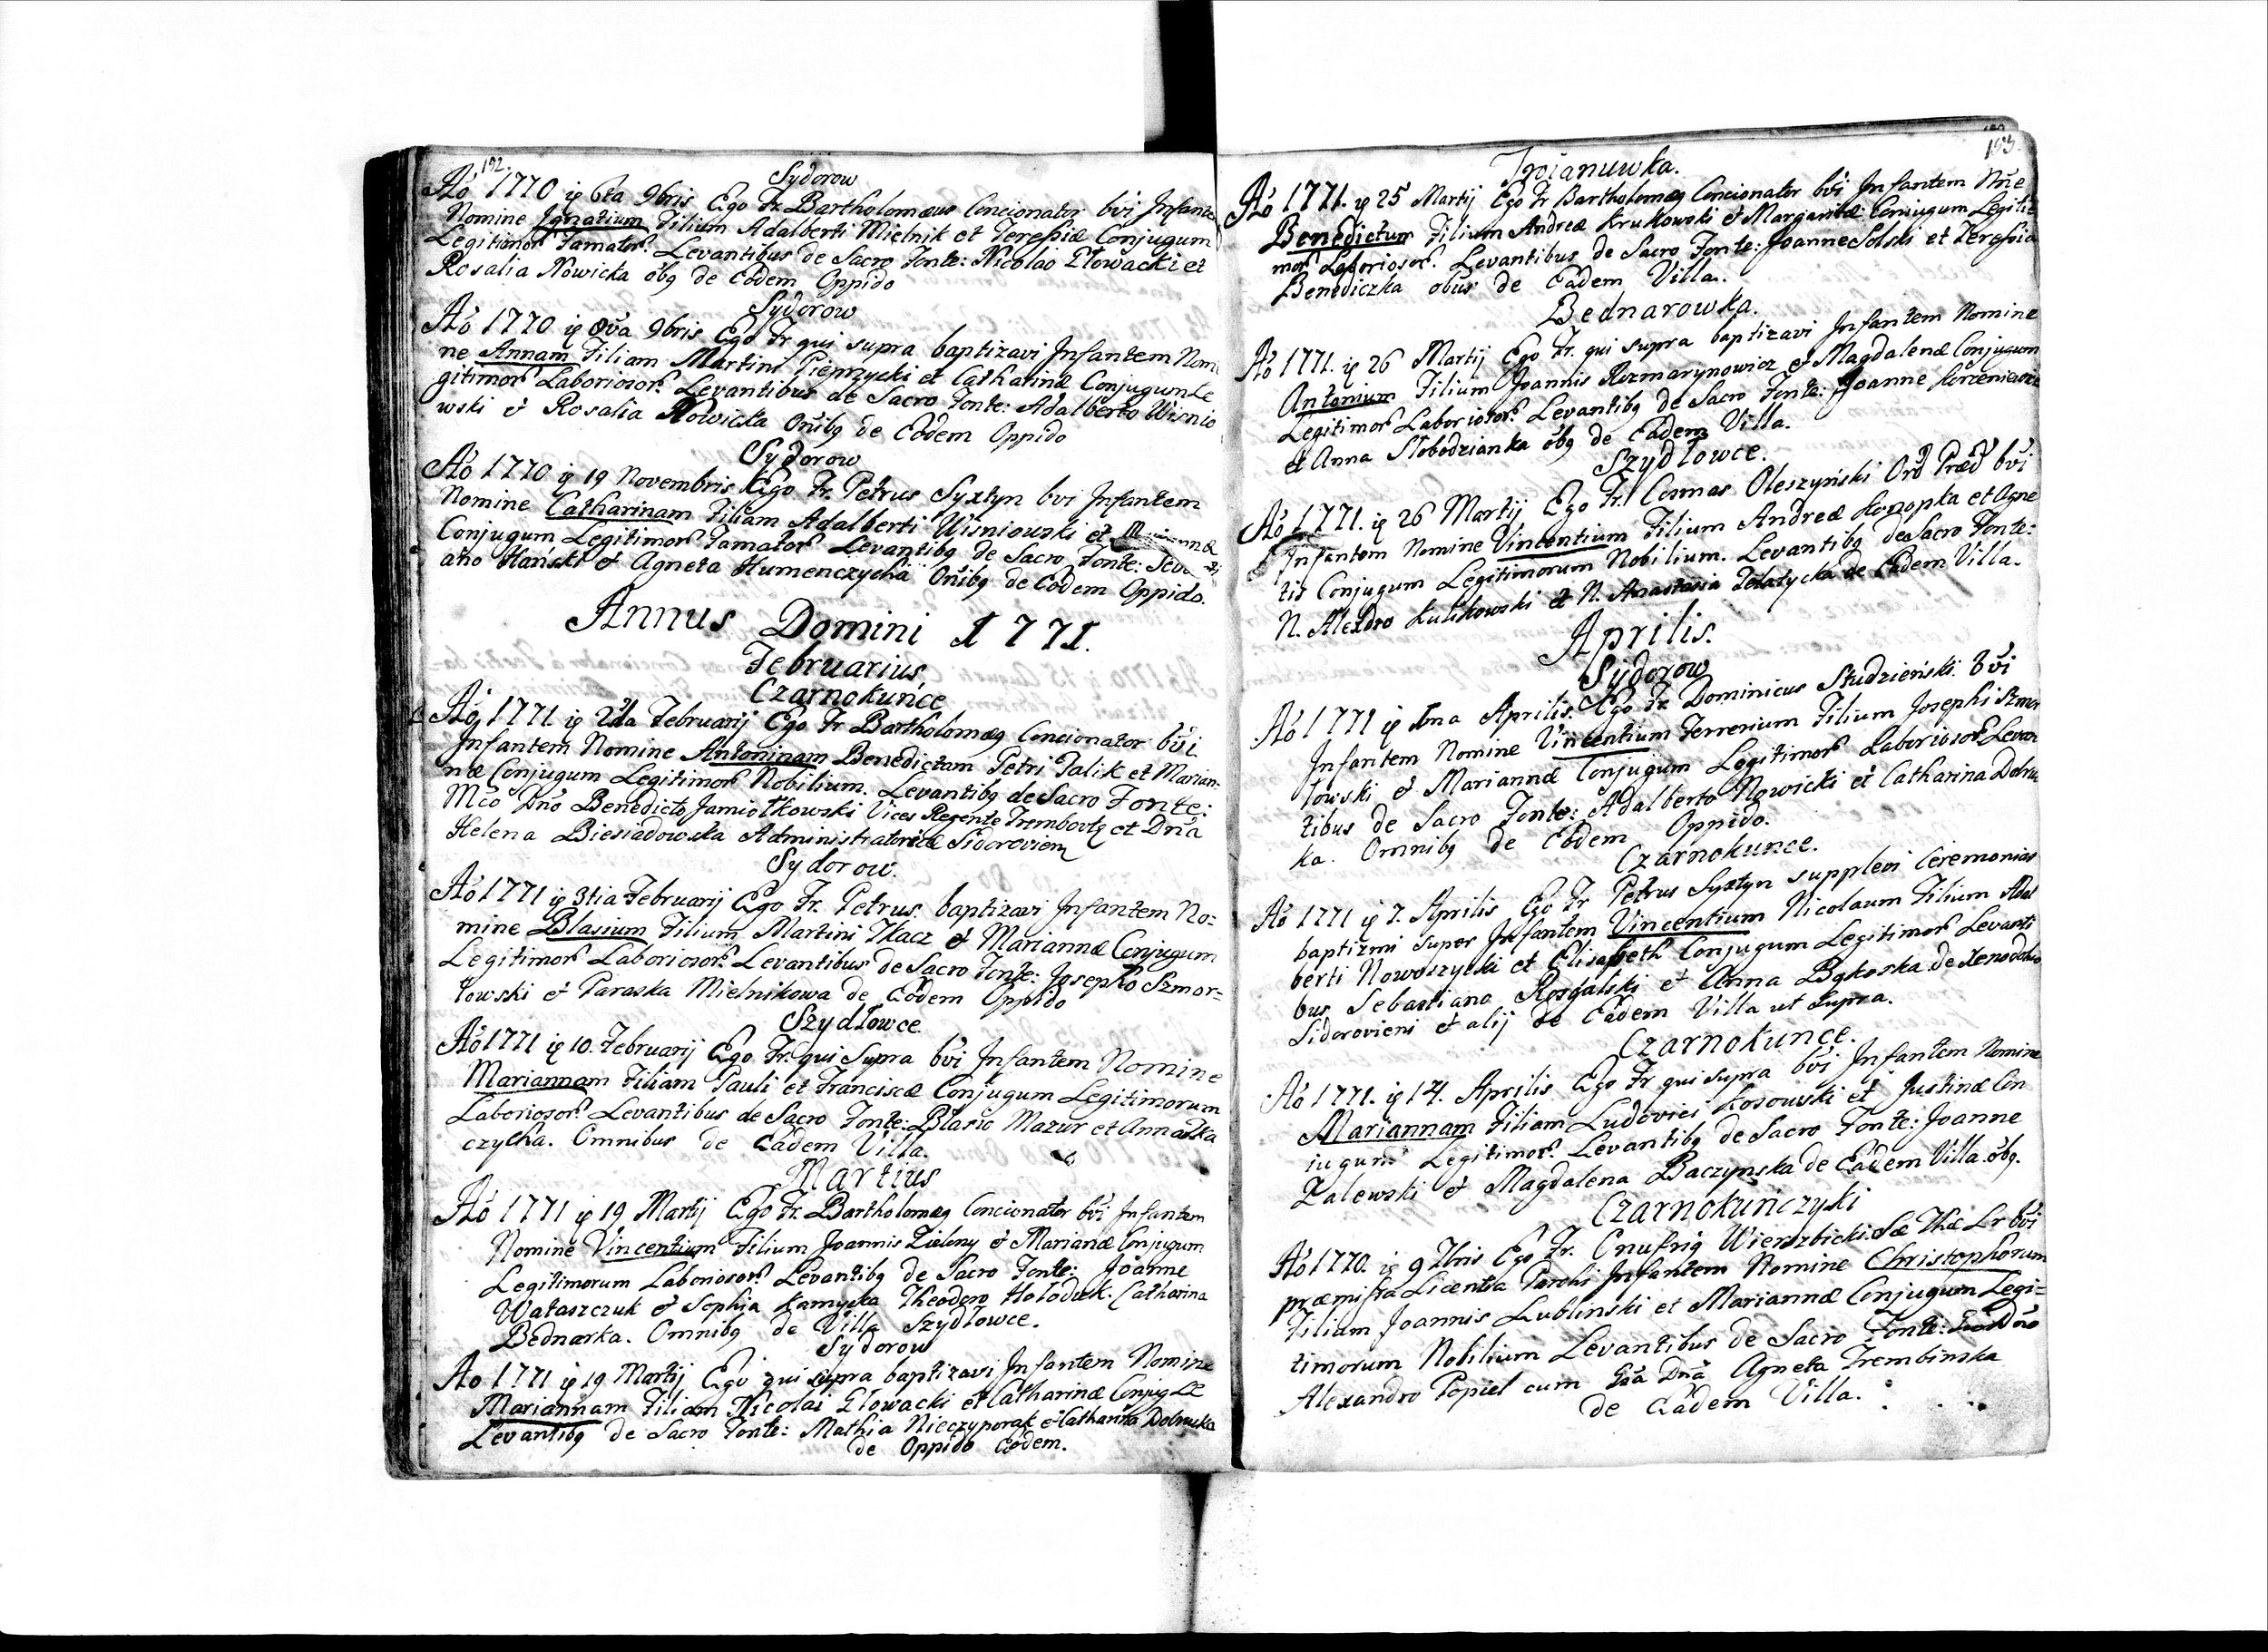 192.
Sydorow
Ao 1770 ip 6ta 9bris Ego Fr. Bartholomæus Concionator bvi Infante
Nomine Ignatium Filium Adalberti Mielnik et Teressiæ Conjugum
Legitimor Famator. Levantibus de Sacro Fonte: Nicolao Głowacki et
Rosalia Nowicka obq de Eodem Oppido
Sydorow
Ao 1770 ip 8va 9bris Ego Fr. qui supra baptizavi Infantem Nomi
ne Annam Filiam Martini Pieprzycki et Catharinæ Conjugum Le
gitimor Laboriosor. Levantibus de Sacro Fonte: Adalberto Wisnio
wski et Rosalia Nowicka Onibq de Eodem Oppido
Sydorow
Ao 1770 ip 19 Novembris Ego Fr. Petrus Syxtyn bvi Infantem
Nomine Catharinam Filiam Adalberti Wisniowski et Mariannæ
Conjugum Legitimor Famator Levantibq de Sacro Fonte:
ano Hański et Agneta Humenczycha Onibq de Eodem Oppido.
Annus Domini 1771.
Februarius
Czarnokuńce
Ao 1771 ip 2da Februarij Ego Fr Bartholomæq Concionator bvi
Infantem Nomine Antoninam Benedictam Petri Falik et Marian=
næ Conjugum Legitimor Nobilium. Levantibq de Sacro Fonte:
Mco Dno Benedicto Jamiołkowski Vices Regente Trembovlq et Dna
Helena Biesiadowska Administratoricæ Sidorovien
Sydorow.
Ao 1771 ip 3tia Februarij Ego Fr. Petrus. baptizavi Infantem No=
mine Blasium Filium Martini Tkacz et Mariannæ Conjugum
Legitimor Laboriosor. Levantibus de Sacro Fonte: Josepho Szmor=
łowski et Paraska Mielnikowa de Eodem Oppido
Szydłowce
Ao 1771 ip 10. Februarij Ego Fr. qui Supra bvi Infantem Nomine
Mariannam Filiam Pauli et Franciscæ Conjugum Legitimorum
Laboriosor. Levantibus de Sacro Fonte: Blasio Mazur et Anna Tka
czycha. Omnibus de Eadem Villa.
Martius
Ao 1771 ip 19 Martij Ego Fr. Bartholomæq Concionator bvi Infantem
Nomine Vincentium Filium Joannis Zielony et Marianæ Conjugum
Legitimorum Laboriosor. Levantibq de Sacro Fonte: Joanne
Wataszczuk et Sophia Kamycka Theodoro Hołoduk. Catharina
Bednarka. Omnibq de Villa Szydłowce.
Sydorow
Ao 1771 ip 19 Martij Ego qui supra baptizavi Infantem Nomine
Mariannam Filiam Nicolai Głowacki et Catharinæ Conjug LL
Levantibq de Sacro Fonte: Mathia Nieczyporak et Catharina Dobruska
de Oppido Eodem.
193.
Ao 1771. ip 25 Martij Ego Fr Bartholomæq Concionator bvi Infantem Nne
Benedictum Filium Andreæ Krukowski et Margaritæ Coniugum Legiti=
mor Laboriosor. Levantibus de Sacro Fonte: Joanne Solski et Teressia
Benediczka obus de Eadem Villa.
Bednarowka.
Ao 1771. ip 26 Martij Ego Fr. qui supra baptizavi Infantem Nomine
Antonium Filium Joannis Rozmarynowicz et Magdalenæ Conjugum
Legitimor Laboriosor. Levantibq de Sacro Fonte: Joanne Korzeniewicz
et Anna Słobodzianka obq de Eadem Villa.
Szydłowce.
Ao 1771. ip 26 Martij Ego Fr. Cosmas Oleszyński Ord Præd bvi
Infantem Nomine Vincentium Filium Andreæ Konopka et Agne
tis Conjugum Legitimorum Nobilium. Levantibq de Sacro Fonte:
N. Alexdro Kulikowski et N. Anastasia de Eadem Villa.
Aprilis.
Sydorow
Ao 1771 ip 1ma Aprilis. Ego Fr Dominicus Studzieński. bvi
Infantem Nomine Vincentium Ferrerium Filium Josephi Szmor
łowski et Mariannæ Conjugum Legitimor Laboriosor Levan
tibus de Sacro Fonte: Adalberto Nowicki et Catharina Dobrus
ka. Omnibq de Eodem Oppido.
Czarnokunce.
Ao 1771 ip 7. Aprilis Ego Fr Petrus Syxtyn supplevi Ceremonias
baptizmi super Infantem Vincentium Nicolaum Filium Adal
berti Nowoszycki et Elisabeth Conjugum Legitimor Levanti
bus Sebastiano Rosgalski et Anna Bąkoska de Xenodochio
Sidorovieni et alij de Eadem Villa ut Supra.
Czarnokunce.
Ao 1771. ip 14. Aprilis Ego Fr qui supra bvi Infantem Nomine
Mariannam Filiam Ludovici Kosowski et Justinæ Con
iugum Legitimor. Levantibq de Sacro Fonte: Joanne
Zalewski et Magdalena Baczynska de Eadem Villa obq.
Czarnokuńczyki
Ao 1770. ip 9 Ego Fr. Onufriq Wierzbicki Sæ Thæ Lr bvi
præmissa Licentia Parohi Infantem Nomine Christophorum
Filium Joannis Lublinski et Mariannæ Conjugum Legi=
timorum Nobilium Levantibus de Sacro Fonte: Dno
Alexandro Popiel cum Gsa Dna Agneta Trembinska
de Eadem Villa.